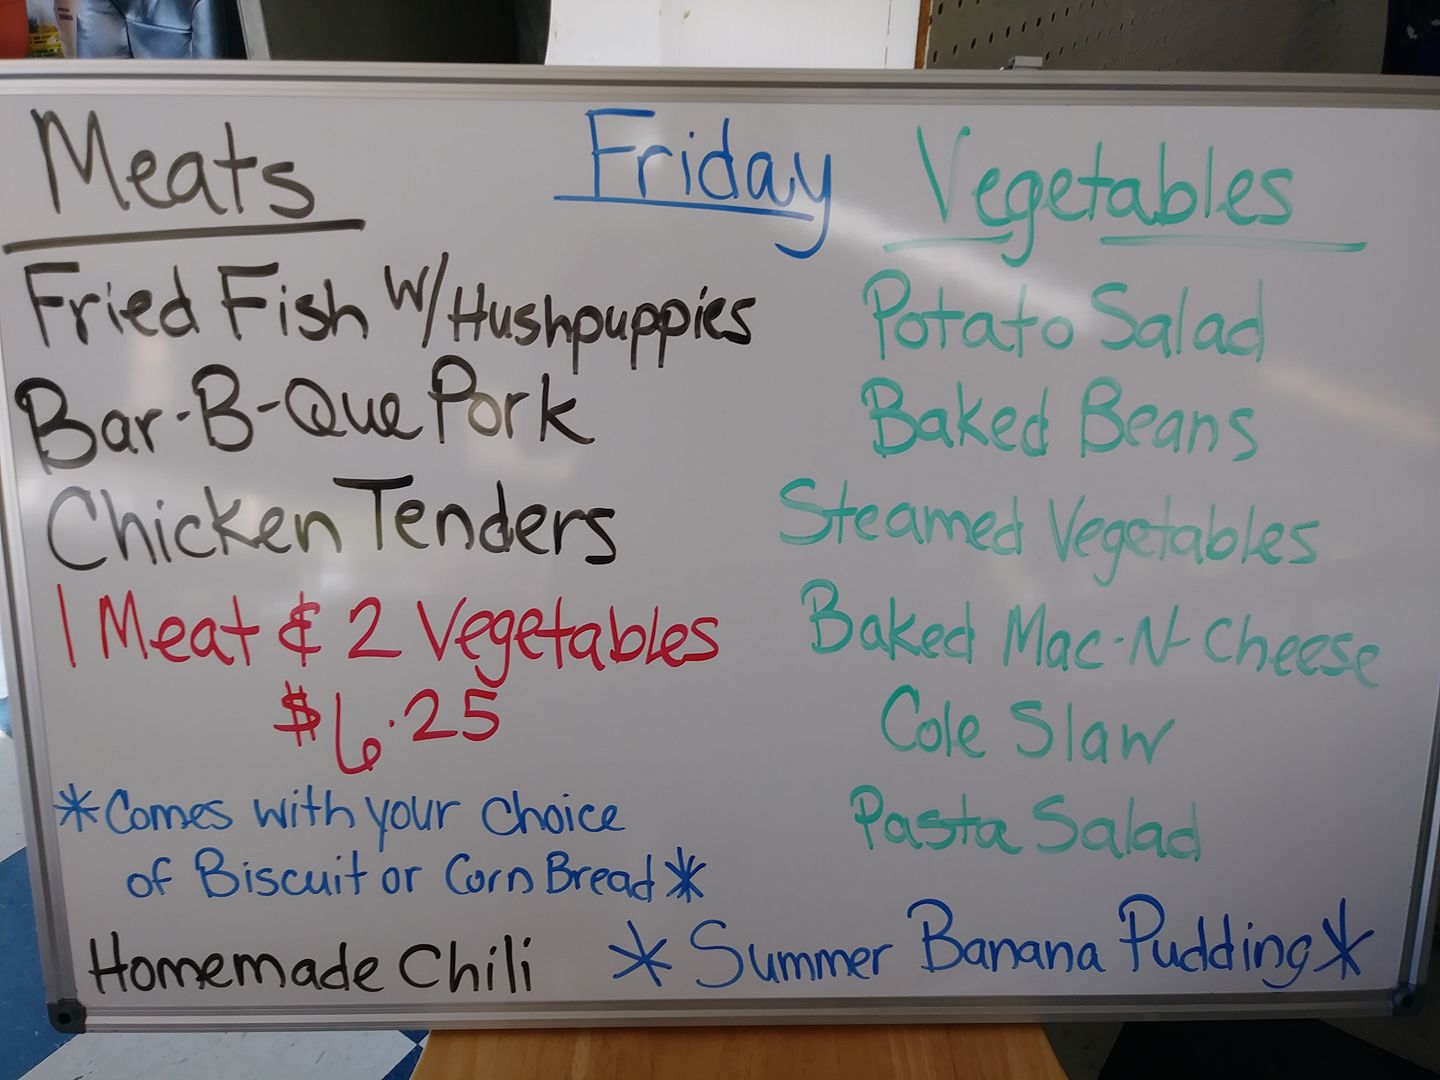 Meats
Friday
Vegetables
Fried Fish w/Hushpuppies
Bar-B-Que Pork
Chicken Tenders
1 Meat & 2 Vegetables
$6.25
*Comes with your choice
of Biscuit or Corn Bread*
Homemade Chili
Potato Salad
Baked Beans
Steamed Vegetables
Baked Mac-N-Cheese
Cole Slaw
Pasta Salad
*Summer Banana Pudding*